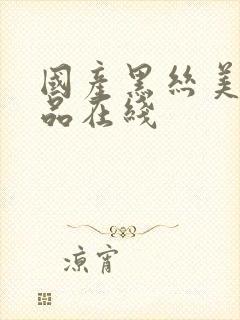 國產黑絲美
品在綫
凉宵